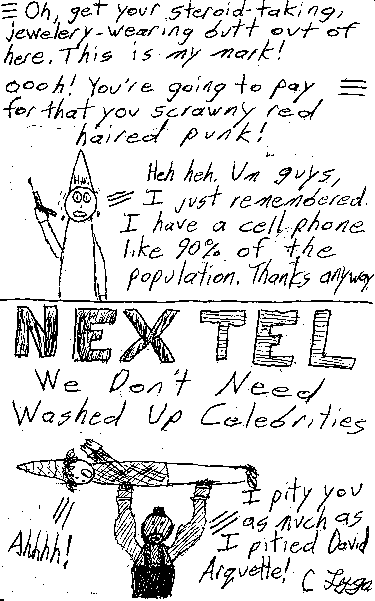 Oh, get your steroid-taking,
jewelery-wearing butt out of
here. This is my mark!
oooh! You're going to pay
for that you scrawny red
haired punk!
Heh heh. Um guys,
I just remembered.
I have a cell phone
like 90% of the
population. Thanks anyway
NEXTEL
We Don't Need
Washed Up Celebrities
I pity you
as much as
I pitied David
Arquette!
Ahhhh!
C